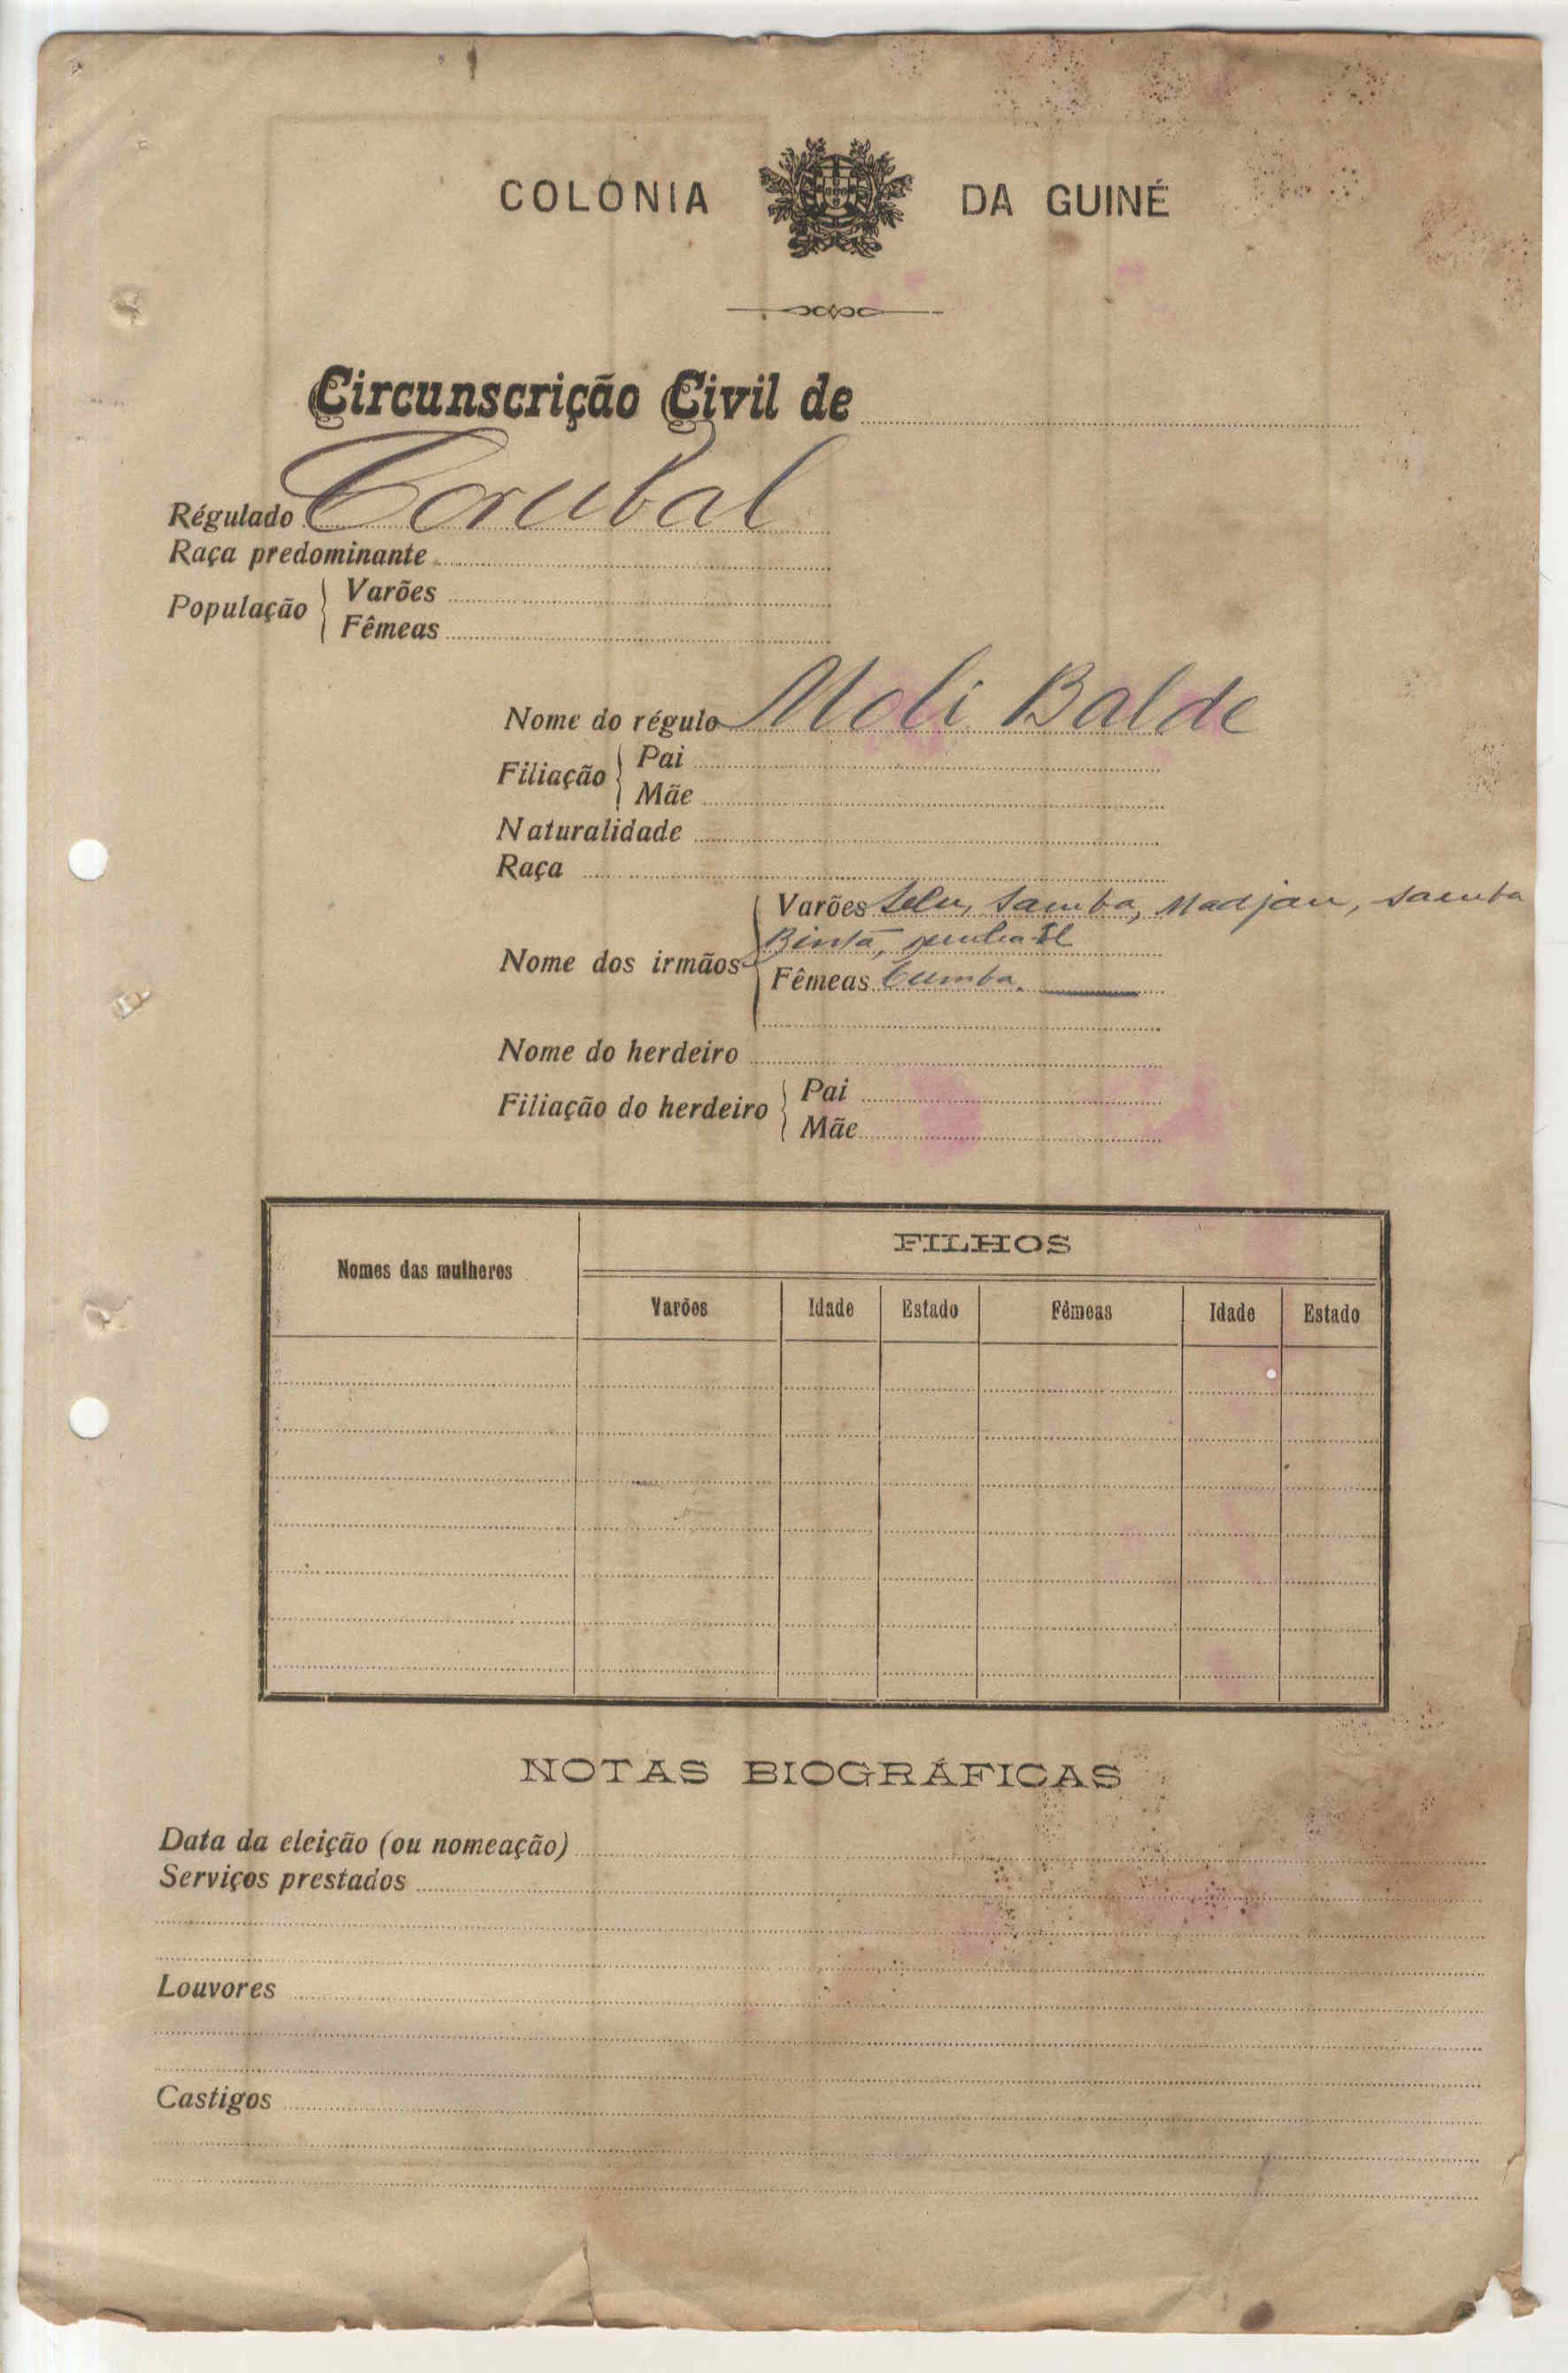 COLÓNIA DA GUINÉ
Circunscrição Civil de
Régulado Corubal
Raça predominante
População
Varões
Fêmeas
Nome do régulo Moli Balde
Filiação
Pai
Mãe
Naturalidade
Raça
Nome dos irmãos
Varões Selu, Samba, Madjau, Samba
Bintá,
Fêmeas Cumba.
Nome do herdeiro
Filiação do herdeiro
Pai
Mãe
Nomes das mulheres
FILHOS
Varões Idade Estado Fêmeas Idade Estado
NOTAS BIOGRÁFICAS
Data da eleição (ou nomeação)
Serviços prestados
Louvores
Castigos